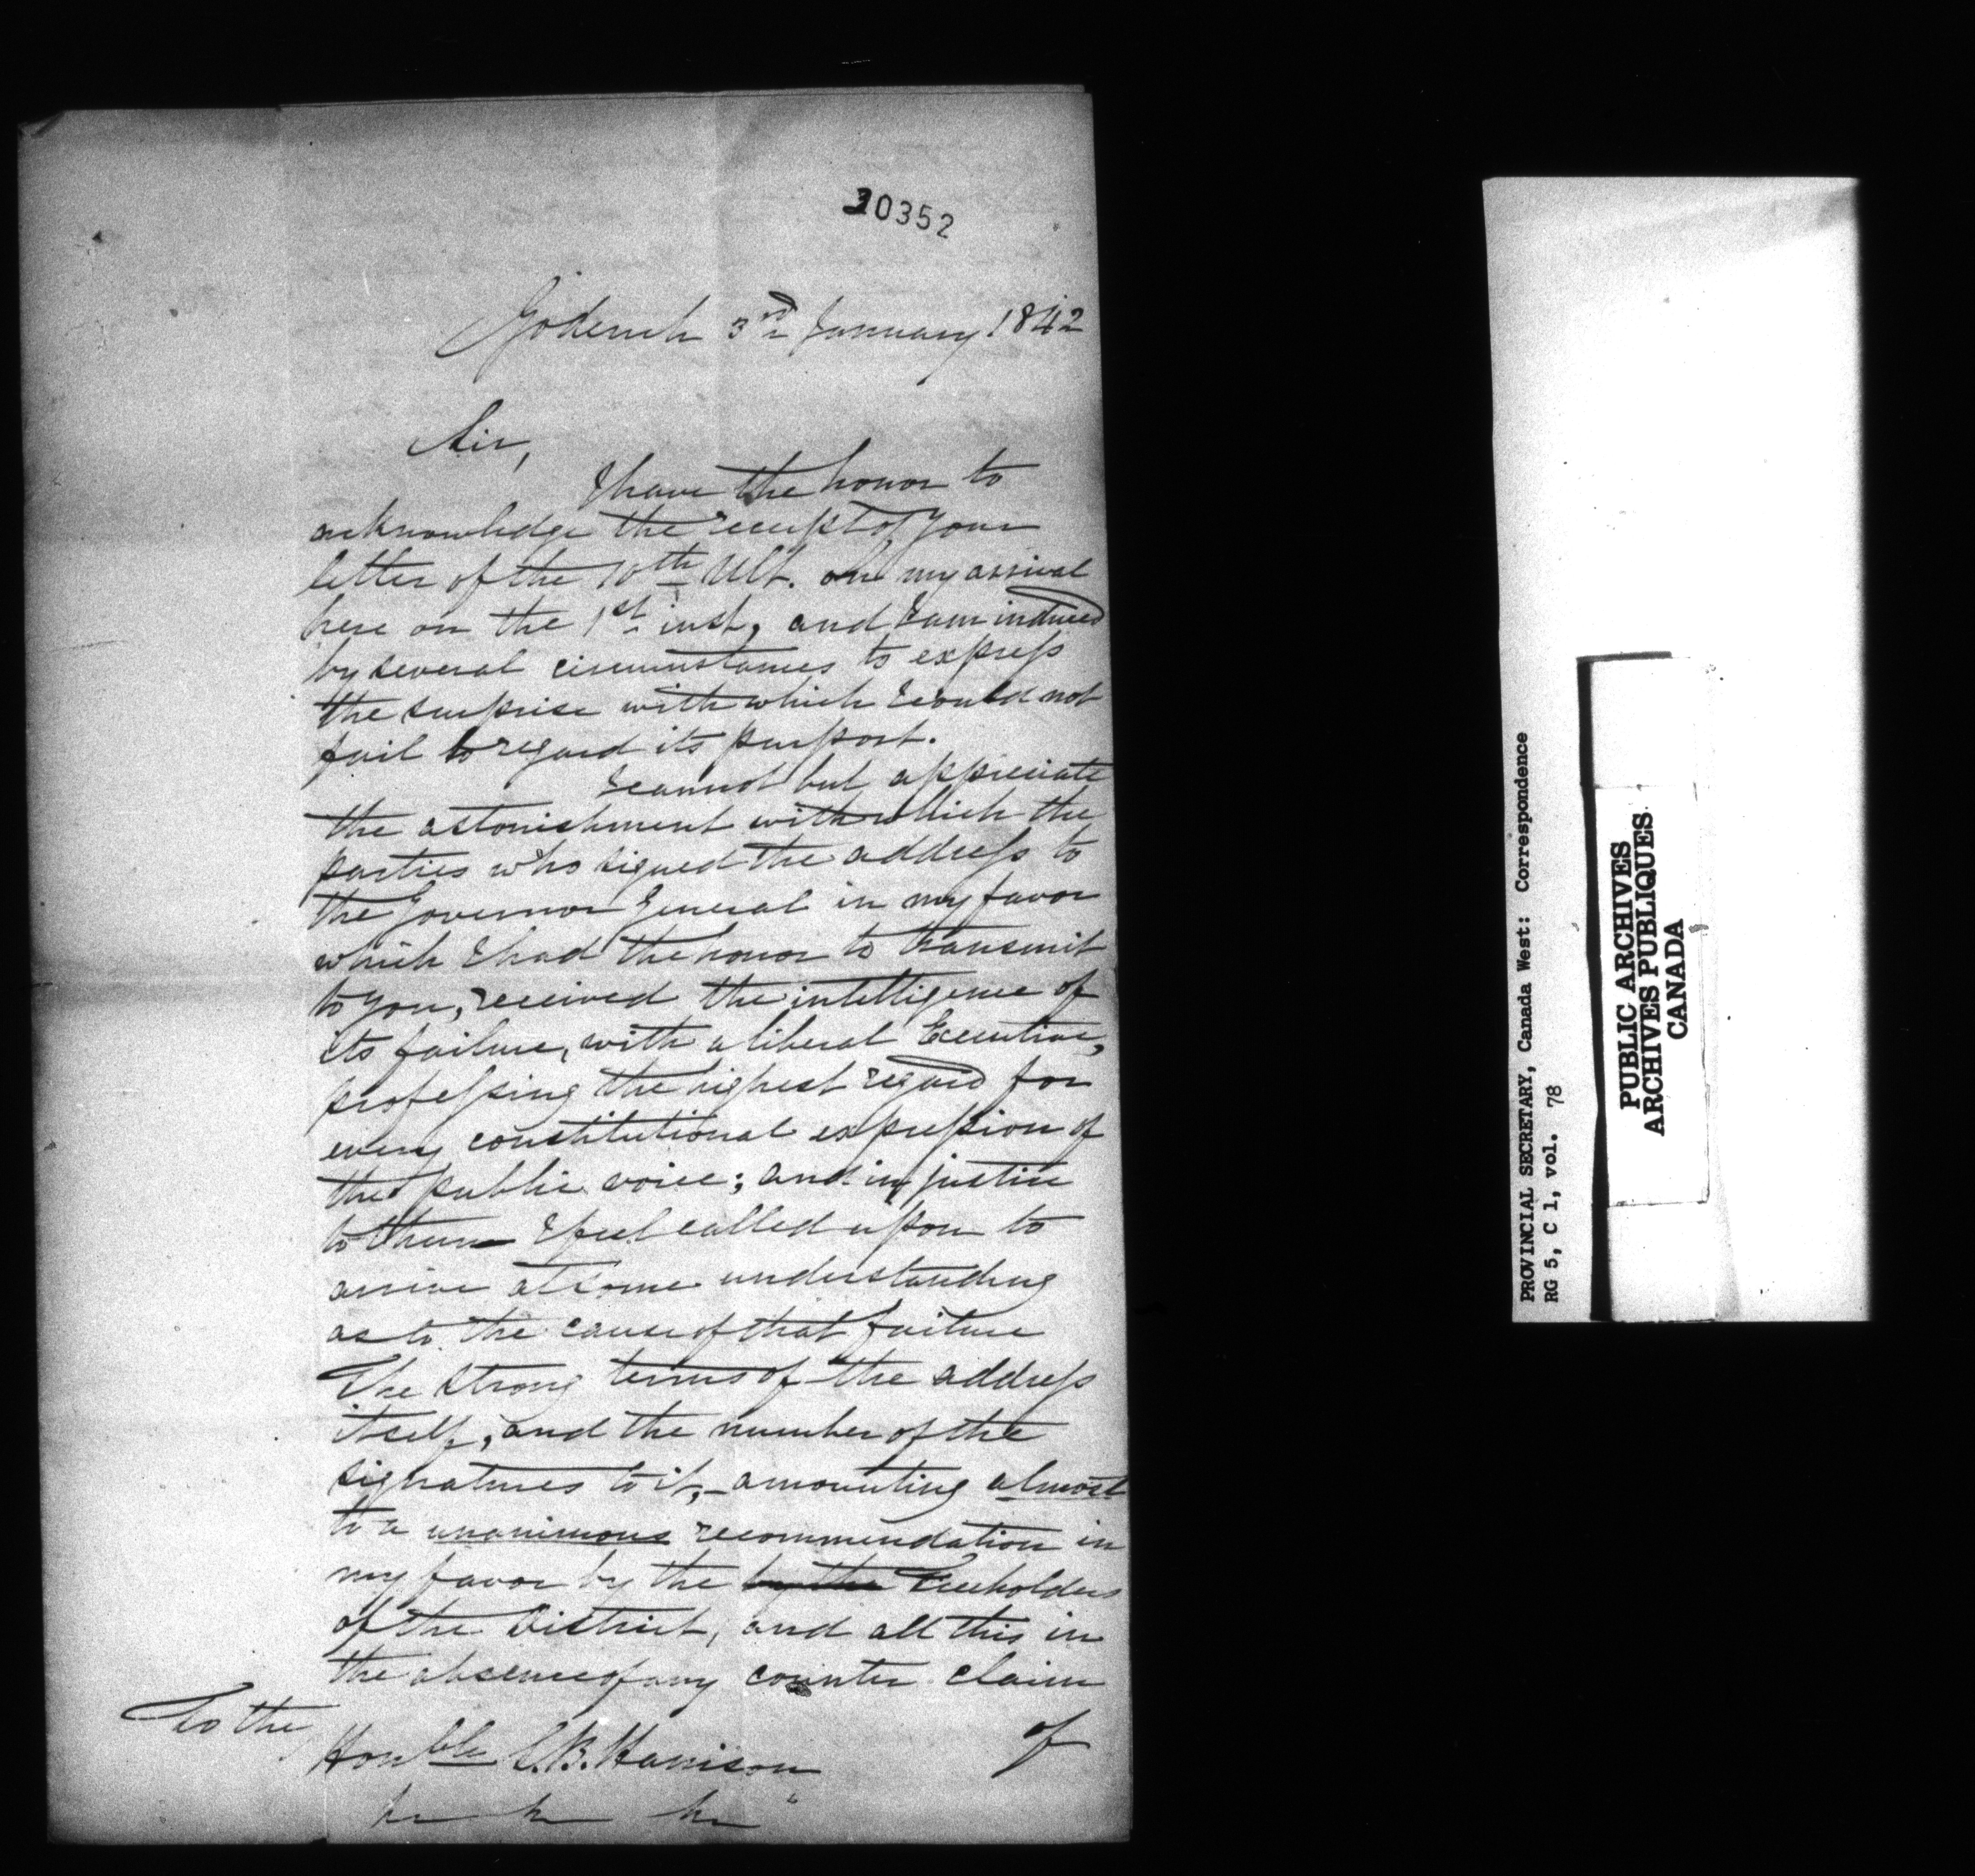 30352
Goderich 3rd January 1842
Sir,
I have the honor to
acknowledge the receipt of your
letter of the 10th Ult. on my arrival
here on the 1st inst, and I am induced
by several circumstances to express
the surprise with which I could not
fail to regard its purport.
I cannot but appreciate
the astonishment with which the
parties who signed the address to
the Governor General in my favor
which I had the honor to transmit
to you, received the intelligence of
its failure, with a liberal Executive,
professing the highest regard for
every constitutional expression of
the public voice; and in justice
to them I feel called upon to
arrive at some understanding
as to the cause of that failure
The strong terms of the address
itself, and the number of the
signatures to it, - amounting almost
to a unanimous recommendation in
my favor by the by the Freeholders
of the District, and all this in
the absence of any counter claim
of
To the
Honble S. B. Harrison
PROVINCIAL SECRETARY, Canada West: Correspondence
RG 5, C 1, vol. 78
PUBLIC ARCHIVES
ARCHIVES PUBLIQUES
CANADA